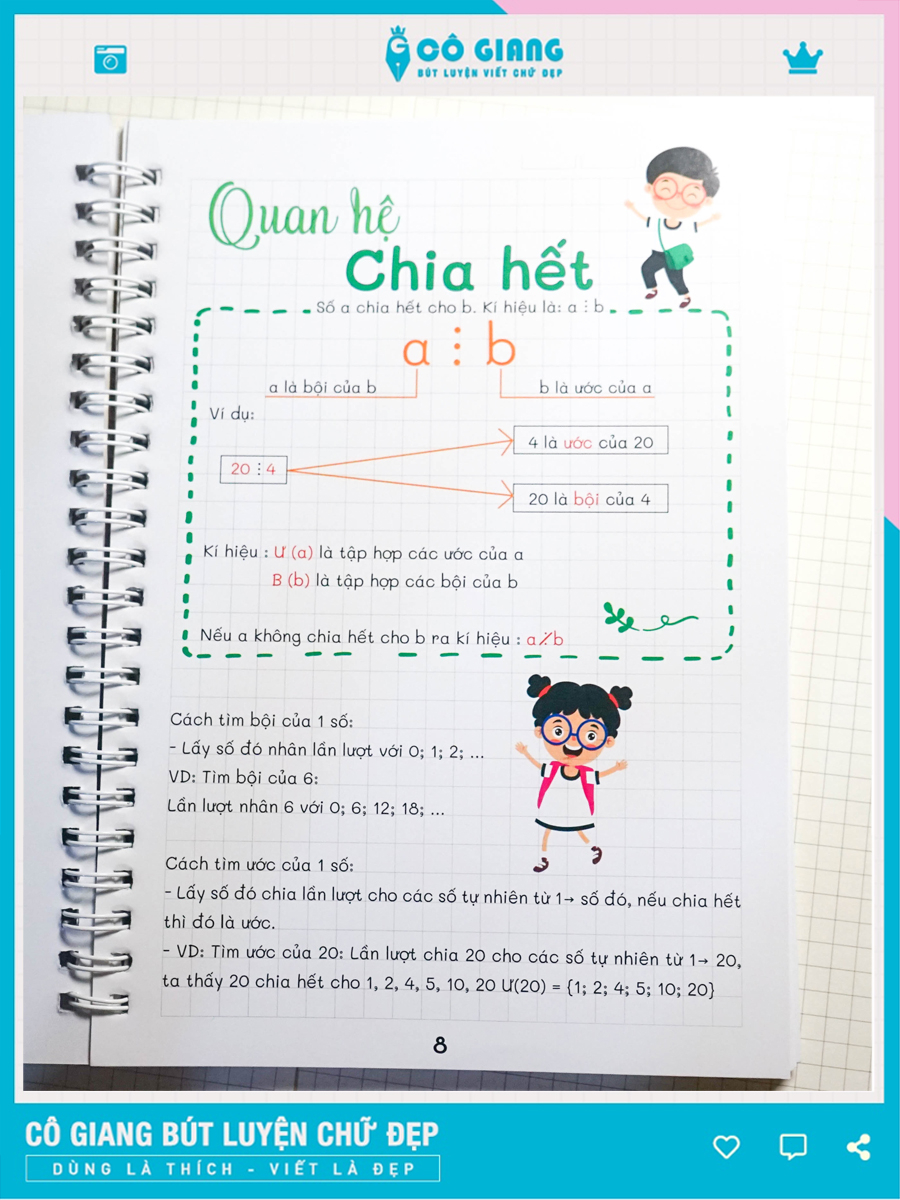 CÔ GIANG
BÚT LUYỆN VIẾT CHỮ ĐẸP
Quan hệ
Chia hết
Số a chia hết cho b. Kí hiệu là: a ⋮ b
a ⋮ b
a là bội của b
b là ước của a
Ví dụ:
4 là ước của 20
20 ⋮ 4
20 là bội của 4
Kí hiệu : Ư (a) là tập hợp các ước của a
B (b) là tập hợp các bội của b
Nếu a không chia hết cho b ra kí hiệu : a⋮̸b
Cách tìm bội của 1 số:
- Lấy số đó nhân lần lượt với 0; 1; 2; ...
VD: Tìm bội của 6:
Lần lượt nhân 6 với 0; 6; 12; 18; ...
Cách tìm ước của 1 số:
- Lấy số đó chia lần lượt cho các số tự nhiên từ 1→ số đó, nếu chia hết
thì đó là ước.
- VD: Tìm ước của 20: Lần lượt chia 20 cho các số tự nhiên từ 1→ 20,
ta thấy 20 chia hết cho 1, 2, 4, 5, 10, 20 Ư(20) = {1; 2; 4; 5; 10; 20}
8
CÔ GIANG BÚT LUYỆN CHỮ ĐẸP
DÙNG LÀ THÍCH - VIẾT LÀ ĐẸP